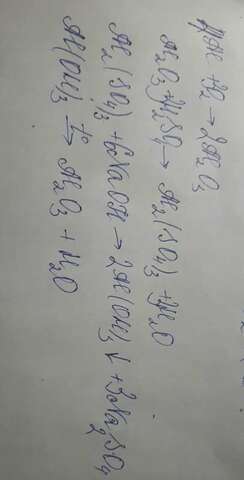 4Al + O₂ → 2Al₂O₃
Al₂O₃ + H₂SO₄ → Al₂(SO₄)₃ + H₂O
Al₂(SO₄)₃ + 6NaOH → 2Al(OH)₃↓ + 3Na₂SO₄
Al(OH)₃ →t° Al₂O₃ + H₂O